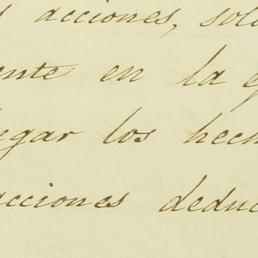 s acciones, sol
ente en la
gar los hech
acciones deduc